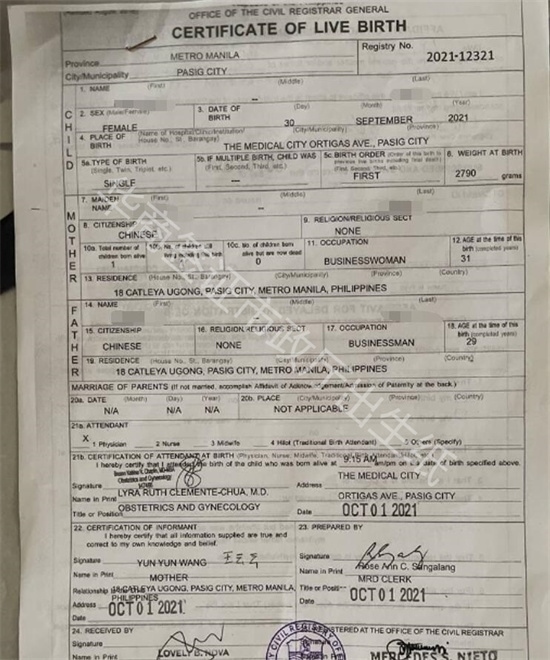 OFFICE OF THE CIVIL REGISTRAR GENERAL
CERTIFICATE OF LIVE BIRTH
Province METRO MANILA
Registry No. 2021-12321
City/Municipality PASIG CITY
CHILD
1. NAME (First) (Middle) (Last)
--
2. SEX (Male/Female) FEMALE
3. DATE OF BIRTH (Day) (Month) (Year)
30 SEPTEMBER 2021
4. PLACE OF BIRTH (Name of Hospital/Clinic/Institution/ House No., St., Barangay) (City/Municipality) (Province)
THE MEDICAL CITY ORTIGAS AVE., PASIG CITY
5a. TYPE OF BIRTH (Single, Twin, Triplet, etc.)
SINGLE
5b. IF MULTIPLE BIRTH, CHILD WAS (First, Second, Third, etc.)
--
5c. BIRTH ORDER (Order of this birth to (First, Second, Third, etc.)
FIRST
6. WEIGHT AT BIRTH
2790 grams
MOTHER
7. MAIDEN NAME (First) (Middle) (Last)
--
8. CITIZENSHIP
CHINESE
9. RELIGION/RELIGIOUS SECT
NONE
10a. Total number of children born alive
1
10b. No. of children still
10c. No. of children born alive but are now dead
0
11. OCCUPATION
BUSINESSWOMAN
12. AGE at the time of this birth (completed years)
31
13. RESIDENCE (House No., St., Barangay) (City/Municipality) (Province) (Country)
18 CATLEYA UGONG, PASIG CITY, METRO MANILA, PHILIPPINES
FATHER
14. NAME (First) (Middle) (Last)
--
15. CITIZENSHIP
CHINESE
16. RELIGION/RELIGIOUS SECT
NONE
17. OCCUPATION
BUSINESSMAN
18. AGE at the time of this birth (completed years)
29
19. RESIDENCE (House No., St., Barangay) (City/Municipality) (Province) (Country)
18 CATLEYA UGONG, PASIG CITY, METRO MANILA, PHILIPPINES
MARRIAGE OF PARENTS (If not married, accomplish Affidavit of Acknowledgement/Admission of Paternity at the back.)
20a. DATE (Month) (Day) (Year)
N/A N/A N/A
20b. PLACE (City/Municipality) (Province) (Country)
NOT APPLICABLE
21a. ATTENDANT
X
1 Physician 2 Nurse 3 Midwife 4 Hilot (Traditional Birth Attendant) 5 Others (Specify)
21b. CERTIFICATION OF ATTENDANT AT BIRTH (Physician, Nurse, Midwife, Traditional Birth Attendant/
I hereby certify that I attended the birth of the child who was born alive at 9:15 AM am/pm on the date of birth specified above.
Obstetrics and Gynecology
Signature
THE MEDICAL CITY
Name in Print LYRA RUTH CLEMENTE-CHUA, M.D.
ORTIGAS AVE., PASIG CITY
Title or Position OBSTETRICS AND GYNECOLOGY
OCT 01 2021
22. CERTIFICATION OF INFORMANT
I hereby certify that all information supplied are true and correct to my own knowledge and belief.
Signature
Name in Print YUN YUN WANG
Relationship to the Child MOTHER
18 CATLEYA UGONG, PASIG CITY, METRO MANILA, PHILIPPINES
Address
OCT 01 2021
23. PREPARED BY
Signature
Name in Print Rose Ann C. Sungalang
Title or Position MRD CLERK
Date OCT 01 2021
24. RECEIVED BY
Signature
Name in Print LOVELY B. NOVA
REGISTERED AT THE OFFICE OF THE CIVIL REGISTRAR
MERCEDES S. NIETO
CIVIL REGISTRY OFFICE